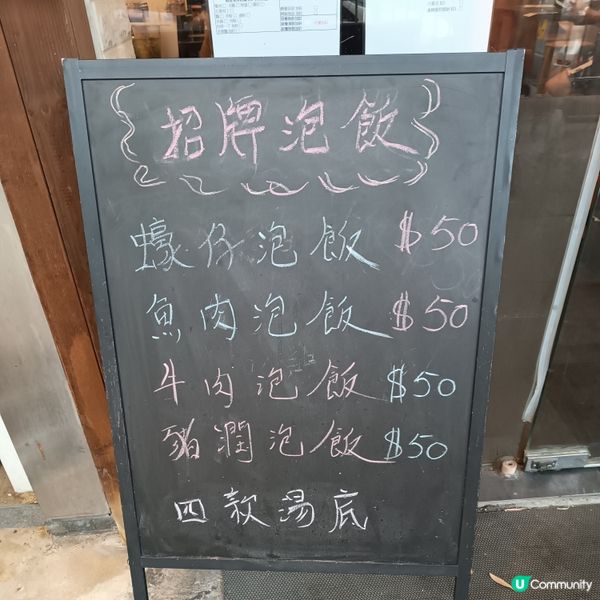 招牌泡飯
蠔仔泡飯 $50
魚肉泡飯 $50
牛肉泡飯 $50
豬潤泡飯 $50
四款湯底
U Community